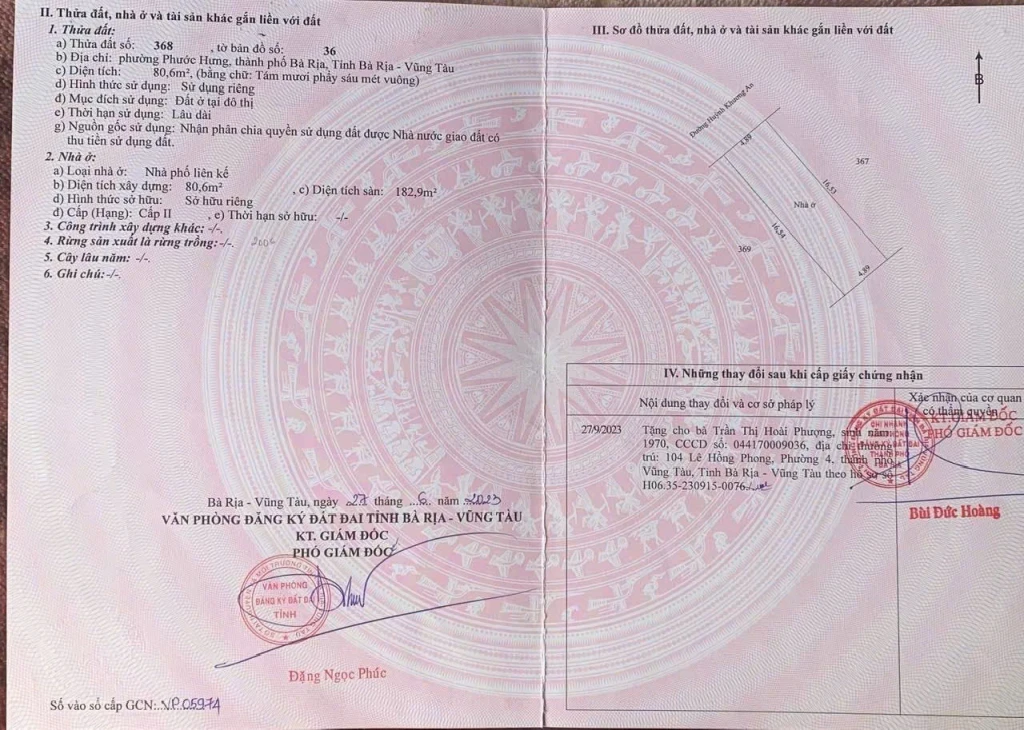 II. Thửa đất, nhà ở và tài sản khác gắn liền với đất
1. Thửa đất:
a) Thửa đất số: 368 , tờ bản đồ số: 36
b) Địa chỉ: phường Phước Hưng, thành phố Bà Rịa, Tỉnh Bà Rịa - Vũng Tàu
c) Diện tích: 80,6m², (bằng chữ: Tám mươi phẩy sáu mét vuông)
d) Hình thức sử dụng: Sử dụng riêng
đ) Mục đích sử dụng: Đất ở tại đô thị
e) Thời hạn sử dụng: Lâu dài
g) Nguồn gốc sử dụng: Nhận phân chia quyền sử dụng đất được Nhà nước giao đất có
thu tiền sử dụng đất.
2. Nhà ở:
a) Loại nhà ở: Nhà phố liên kế
b) Diện tích xây dựng: 80,6m² , c) Diện tích sàn: 182,9m²
d) Hình thức sở hữu: Sở hữu riêng
đ) Cấp (Hạng): Cấp II , e) Thời hạn sở hữu: -/-
3. Công trình xây dựng khác: -/-.
4. Rừng sản xuất là rừng trồng:-/-.
5. Cây lâu năm: -/-.
6. Ghi chú:-/-.
Bà Rịa - Vũng Tàu, ngày 27 tháng ...6. năm 2023
VĂN PHÒNG ĐĂNG KÝ ĐẤT ĐAI TỈNH BÀ RỊA - VŨNG TÀU
KT. GIÁM ĐỐC
PHÓ GIÁM ĐỐC
VĂN PHÒNG
ĐĂNG KÝ ĐẤT ĐAI
TỈNH
Đặng Ngọc Phúc
Số vào sổ cấp GCN:..VP.05974
III. Sơ đồ thửa đất, nhà ở và tài sản khác gắn liền với đất
B
Đường Huỳnh Khương An
4,89
367
16,53
Nhà ở
16,54
369
4,89
IV. Những thay đổi sau khi cấp giấy chứng nhận
Nội dung thay đổi và cơ sở pháp lý
Xác nhận của cơ quan
có thẩm quyền
27/9/2023
Tặng cho bà Trần Thị Hoài Phượng, sinh năm
1970, CCCD số: 044170009036, địa chỉ thường
trú: 104 Lê Hồng Phong, Phường 4, thành phố
Vũng Tàu, Tỉnh Bà Rịa - Vũng Tàu theo hồ sơ số
H06.35-230915-0076
KT.GIÁM ĐỐC
PHÓ GIÁM ĐỐC
CHI NHÁNH
VĂN PHÒNG
ĐĂNG KÝ ĐẤT ĐAI
THÀNH PHỐ
BÀ RỊA
Bùi Đức Hoàng